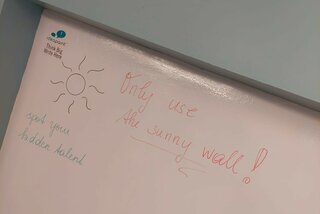 Think Big.
Write Here.
Only use
the sunny wall!
spot your
hidden talent